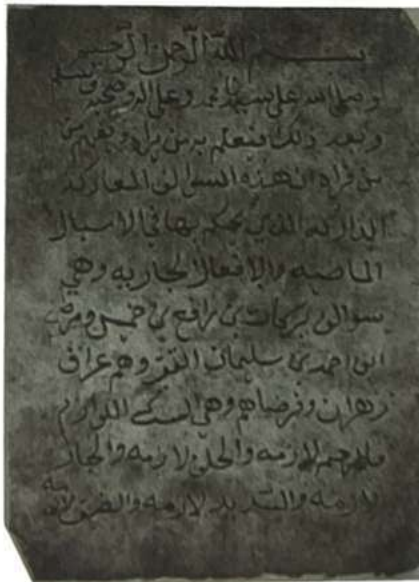 بسم الله الرحمن الرحيم
وصلى الله على سيدنا محمد وعلى اله وصحبه وسلم
وبعد ذلك فيعلم به من يراه ويفهم من
من قراه ان هذه السوالف المعاركه
الداركه الذي يحكم بها في الاسبال
الماضيه والافعال الجاريه وهي
سوالف بركات بن رافع بن خميس
ابن احمد بن سليمان الفقير وهم عراف
زهران وفرضاهم وهي
لازمه والخلف لازمه والجار
لازمه والسديد لازمه لازمه